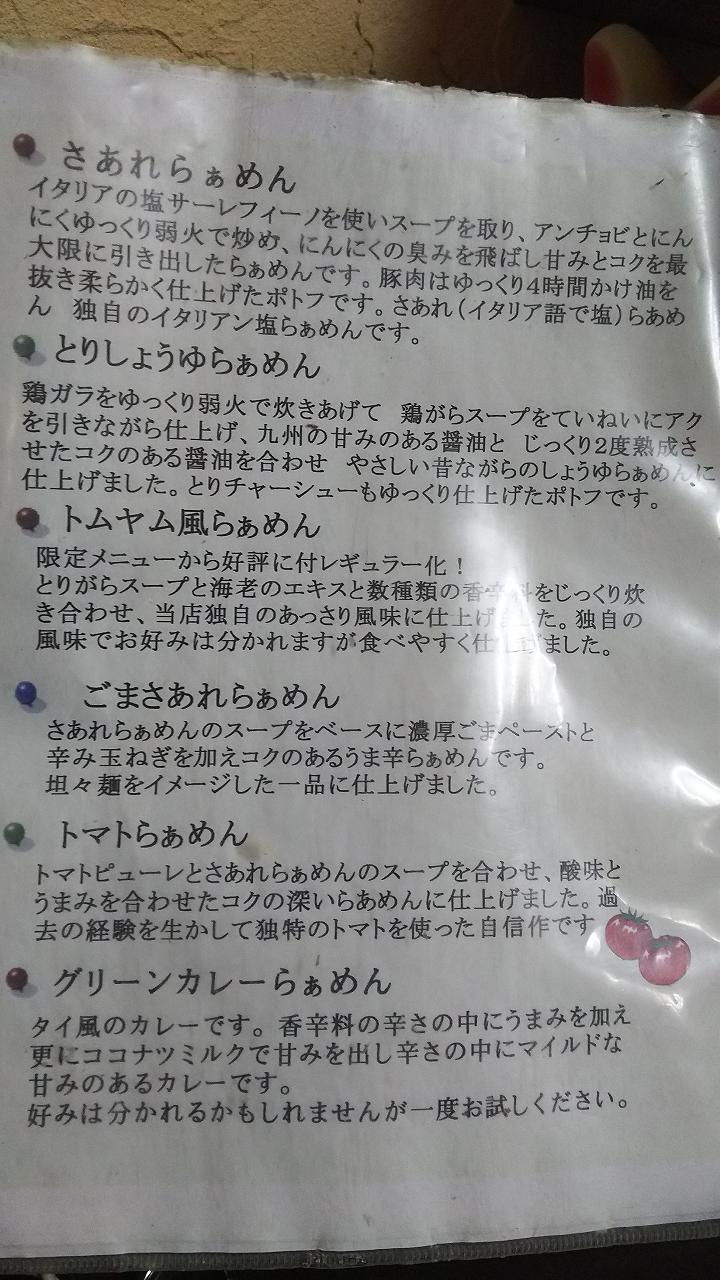 さあれらぁめん
イタリアの塩サーレフィーノを使いスープを取り、アンチョビとにん
にくゆっくり弱火で炒め、にんにくの臭みを飛ばし甘みとコクを最
大限に引き出したらぁめんです。豚肉はゆっくり4時間かけ油を
抜き柔らかく仕上げたポトフです。さあれ(イタリア語で塩)らあめ
ん　独自のイタリアン塩らぁめんです。
とりしょうゆらぁめん
鶏ガラをゆっくり弱火で炊きあげて　鶏がらスープをていねいにアク
を引きながら仕上げ、九州の甘みのある醤油と　じっくり2度熟成さ
せたコクのある醤油を合わせ　やさしい昔ながらのしょうゆらぁめんに
仕上げました。とりチャーシューもゆっくり仕上げたポトフです。
トムヤム風らぁめん
限定メニューから好評に付レギュラー化！
とりがらスープと海老のエキスと数種類の香辛料をじっくり炊
き合わせ、当店独自のあっさり風味に仕上げました。独自の
風味でお好みは分かれますが食べやすく仕上げました。
ごまさあれらぁめん
さあれらぁめんのスープをベースに濃厚ごまペーストと
辛み玉ねぎを加えコクのあるうま辛らぁめんです。
坦々麺をイメージした一品に仕上げました。
トマトらぁめん
トマトピューレとさあれらぁめんのスープを合わせ、酸味と
うまみを合わせたコクの深いらあめんに仕上げました。過
去の経験を生かして独特のトマトを使った自信作です
グリーンカレーらぁめん
タイ風のカレーです。香辛料の辛さの中にうまみを加え
更にココナツミルクで甘みを出し辛さの中にマイルドな
甘みのあるカレーです。
好みは分かれるかもしれませんが一度お試しください。